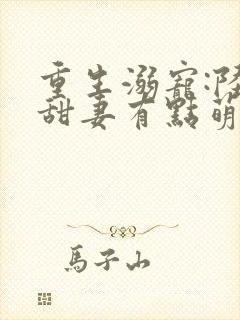 重生溺寵:隆
甜妻有點萌
馬子山